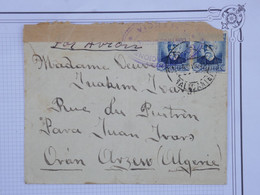 Par Avion
Madame Veuve
Joakim Ivars
Rue du Puits
Para Juan Ivars
Orán Arzew (Algerie)